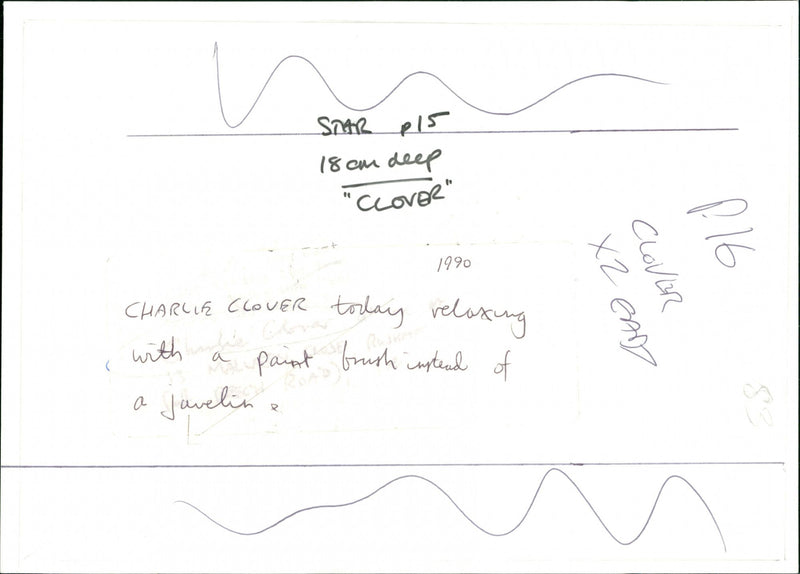 STAR p15
18 cm deep
"CLOVER"
1990
CHARLIE CLOVER today relaxing
with a paint brush instead of
a javelin.
P.16
CLOVER
X2